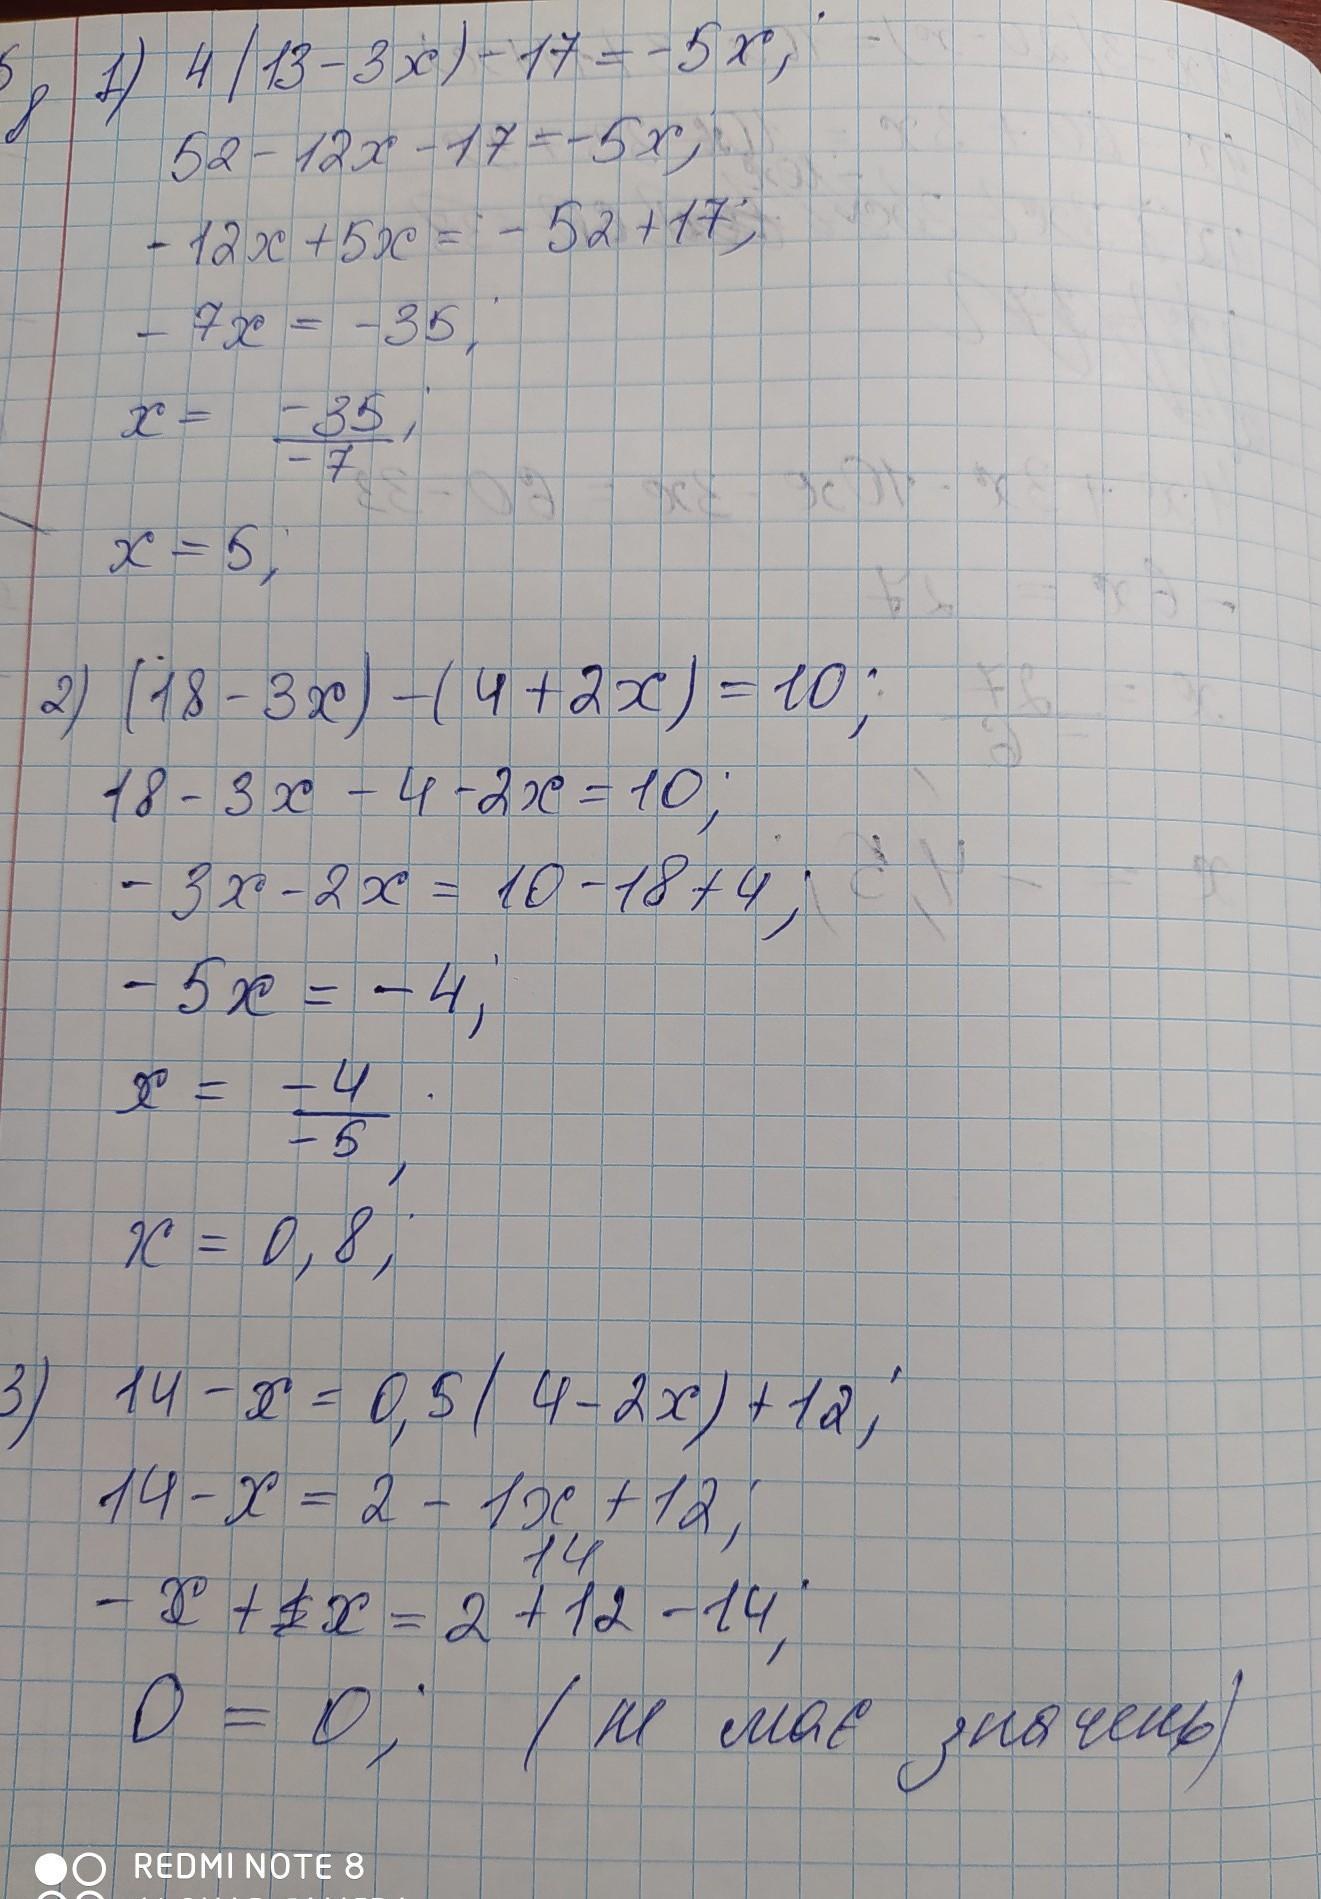 1) 4(13-3x)-17=-5x;
52-12x-17=-5x;
-12x+5x=-52+17;
-7x=-35;
x= -35/-7;
x=5;
2) (18-3x)-(4+2x)=10;
18-3x-4-2x=10;
-3x-2x=10-18+4;
-5x=-4;
x= -4/-5;
x=0,8;
3) 14-x=0,5(4-2x)+12;
14-x=2-1x+12;
14
-x+1x=2+12-14;
0=0; (не має значень)
REDMI NOTE 8